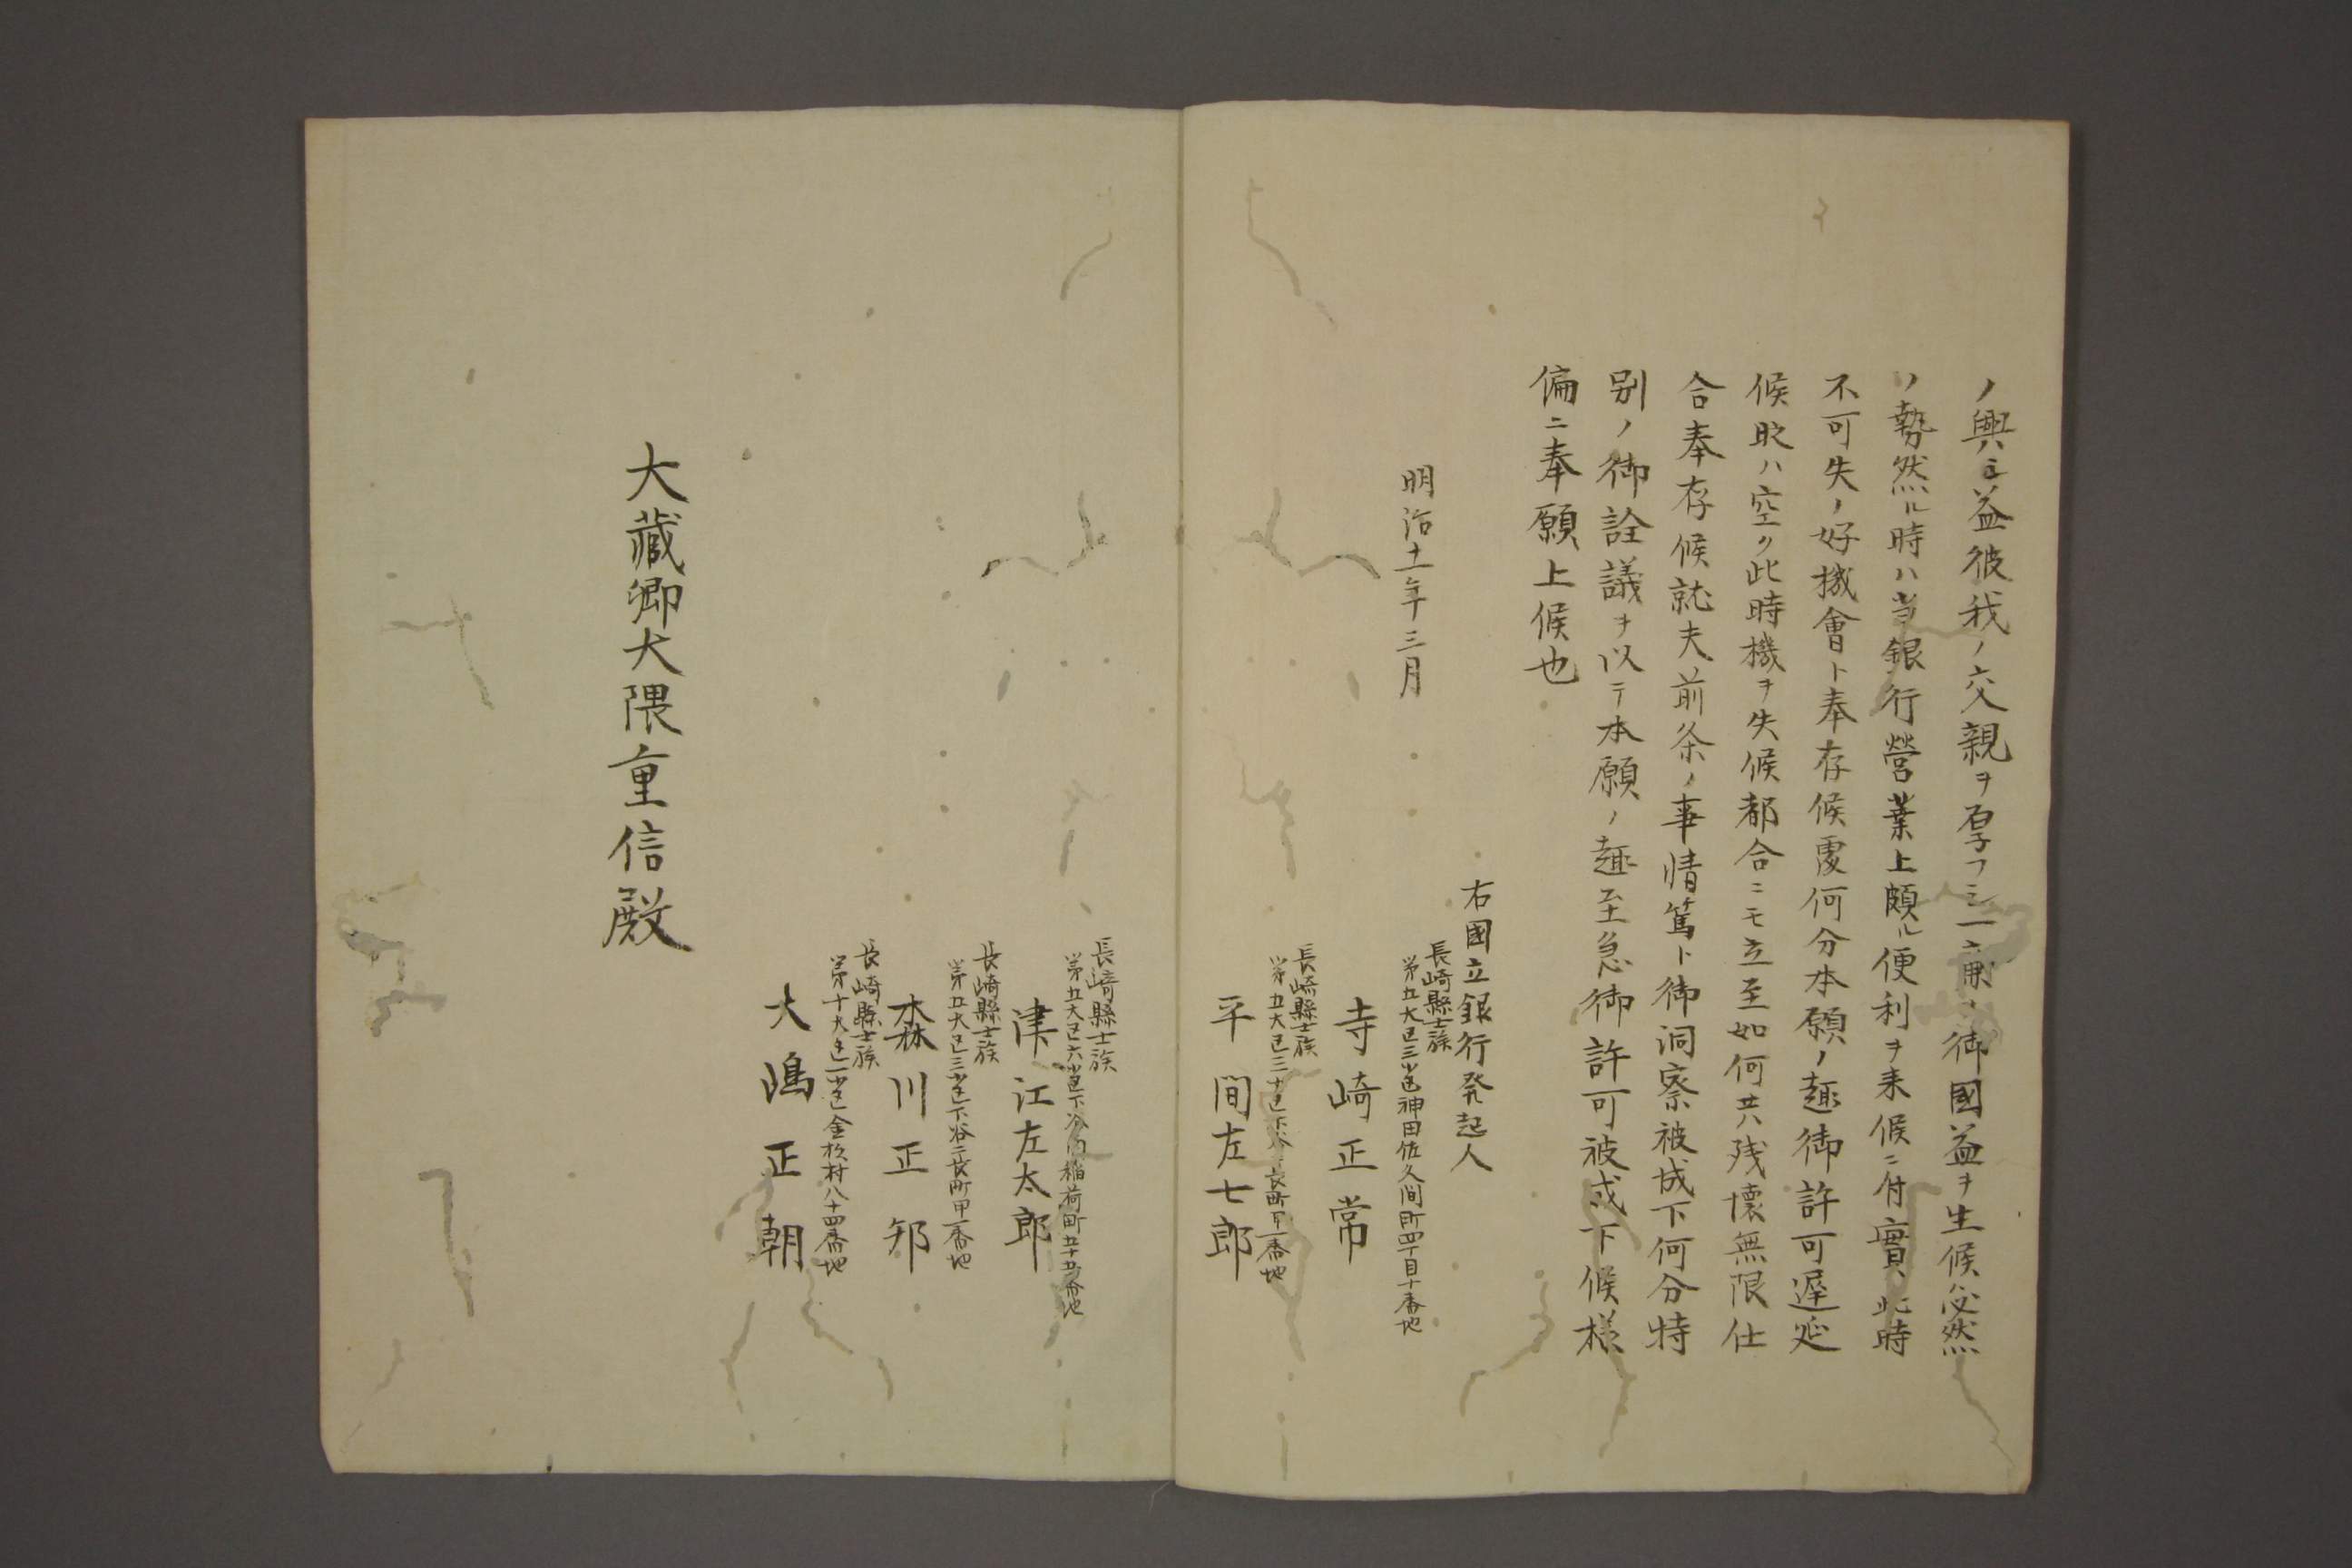 ノ興ニ益彼我ノ交親ヲ厚フシ一廉ノ御國益ヲ生候ハ必然
ノ勢然ル時ハ当銀行營業上頗ル便利ヲ来候ニ付實ニ此時
不可失ノ好機會ト奉存候處何分本願ノ趣御許可遅延
候时ハ空ク此時機ヲ失候都合ニモ立至如何共残懐無限仕
合奉存候就夫前条ノ事情篤ト御洞察被成下何分特
別ノ御詮議ヲ以テ本願ノ趣至急御許可被成下候様
偏ニ奉願上候也
明治十一年三月
右國立銀行発起人
長崎縣士族
第五大区三小区神田佐久間町四丁目十番地
寺崎正常
長崎縣士族
第五大区三小区下谷二長町甲一番地
平間左七郎
長崎縣士族
第五大区六小区下谷南稲荷町五十五番地
津江左太郎
長崎縣士族
第五大区三小区下谷二長町甲一番地
森川正邦
長崎縣士族
第十大区二小区金杉村八十四番地
大嶋正朝
大藏卿大隈重信殿